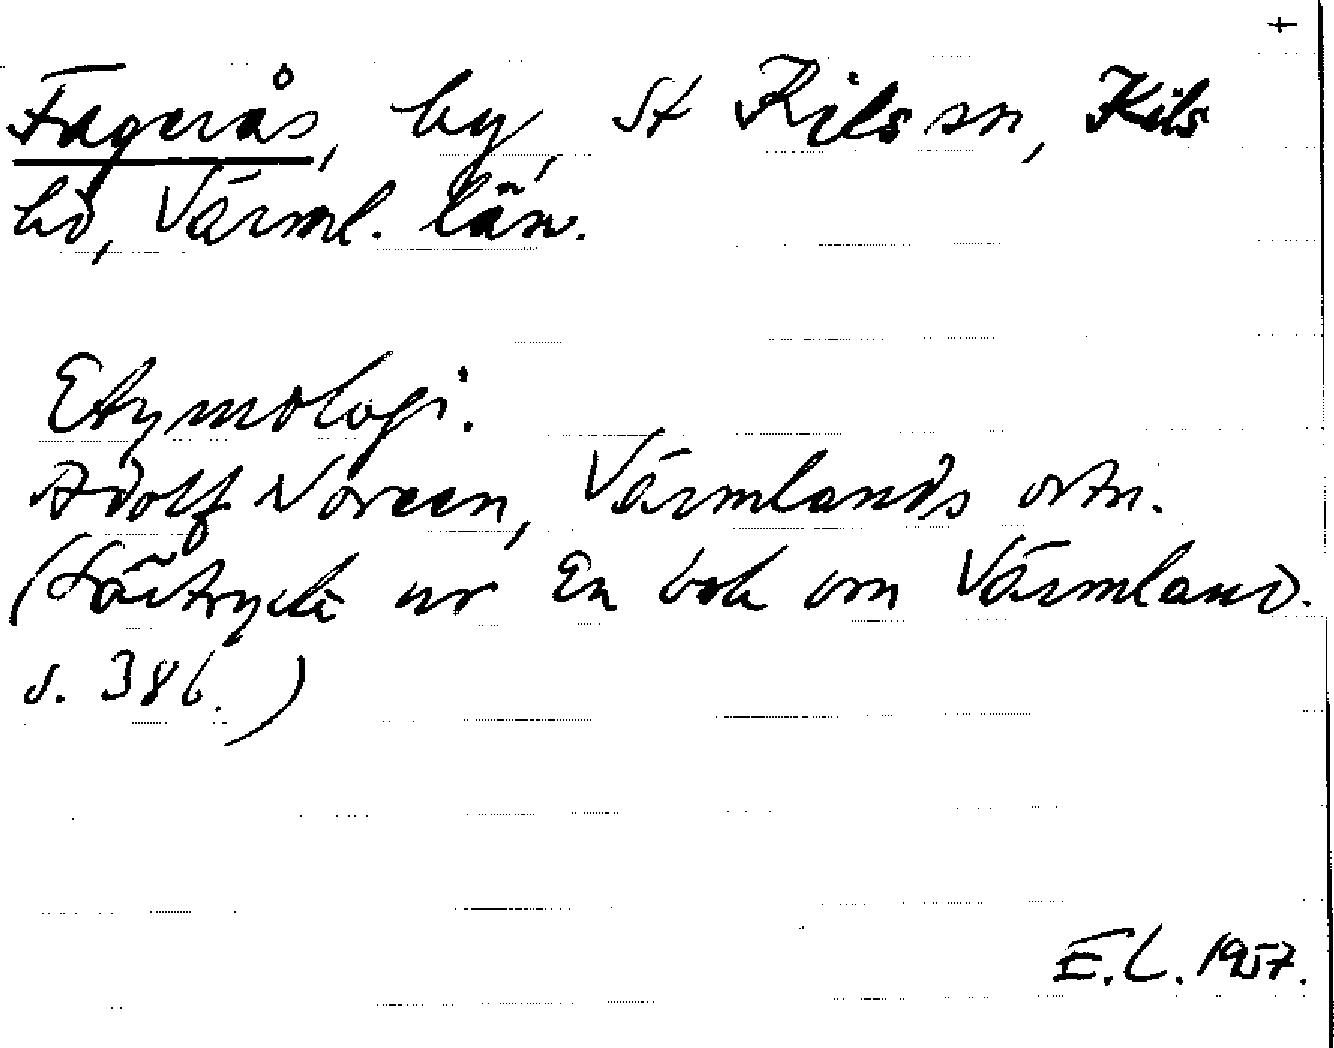 +
Fagerås, by, St Kils sn, Kils
hd, Värml. län.
Etymologi.
Adolf Noreen, Värmlands ortn.
(Särtryck ur En bok om Värmland.
s. 386.)
E.L. 1957.